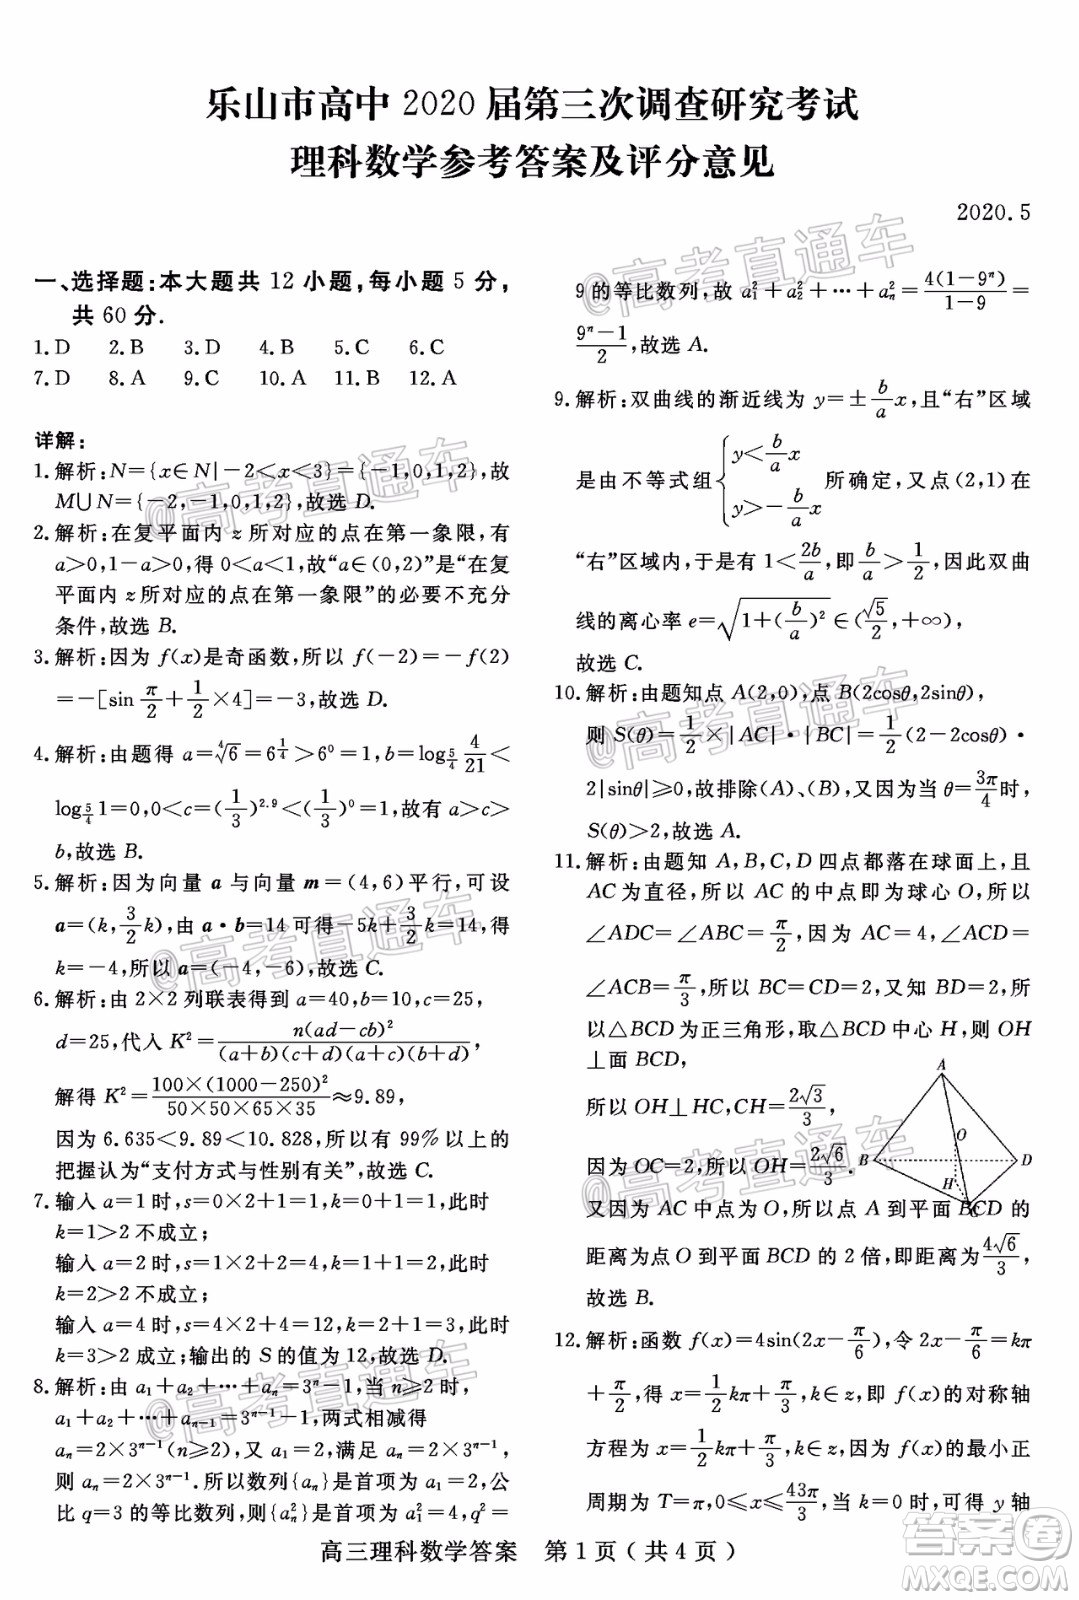 乐山市高中 2020 届第三次调查研究考试
理科数学参考答案及评分意见
2020.5
一、选择题:本大题共 12 小题,每小题 5 分,
共 60 分.
1.D 2.B 3.D 4.B 5.C 6.C
7.D 8.A 9.C 10.A 11.B 12.A
详解:
1.解析:N={x∈N|-2<x<3}={-1,0,1,2},故
M∪N={-2,-1,0,1,2},故选 D.
2.解析:在复平面内 z 所对应的点在第一象限,有
a>0,1-a>0,得 0<a<1,故“a∈(0,2)”是“在复
平面内 z 所对应的点在第一象限”的必要不充分
条件,故选 B.
3.解析:因为 f(x)是奇函数,所以 f(-2)=-f(2)
=-[sin π/2+1/2×4]=-3,故选 D.
4.解析:由题得 a=∜6=6^(1/4)>6⁰=1,b=log_(5/4) 4/21<
log_(5/4) 1=0,0<c=(1/3)^2.9<(1/3)⁰=1,故有 a>c>
b,故选 B.
5.解析:因为向量 a 与向量 m=(4,6)平行,可设
a=(k,3/2k),由 a·b=14 可得-5k+3/2k=14,得
k=-4,所以 a=(-4,-6),故选 C.
6.解析:由 2×2 列联表得到 a=40,b=10,c=25,
d=25,代入 K²=n(ad-cb)²/((a+b)(c+d)(a+c)(b+d)),
解得 K²=100×(1000-250)²/(50×50×65×35)≈9.89,
因为 6.635<9.89<10.828,所以有 99%以上的
把握认为“支付方式与性别有关”,故选 C.
7.输入 a=1 时,s=0×2+1=1,k=0+1=1,此时
k=1>2 不成立;
输入 a=2 时,s=1×2+2=4,k=1+1=2,此时
k=2>2 不成立;
输入 a=4 时,s=4×2+4=12,k=2+1=3,此时
k=3>2 成立;输出的 S 的值为 12,故选 D.
8.解析:由 a₁+a₂+…+aₙ=3ⁿ-1,当 n≥2 时,
a₁+a₂+…+aₙ₋₁=3ⁿ⁻¹-1,两式相减得
aₙ=2×3ⁿ⁻¹(n≥2),又 a₁=2,满足 aₙ=2×3ⁿ⁻¹,
则 aₙ=2×3ⁿ⁻¹.所以数列{aₙ}是首项为 a₁=2,公
比 q=3 的等比数列,则{aₙ²}是首项为 a₁²=4,q²=
9 的等比数列,故 a₁²+a₂²+…+aₙ²=4(1-9ⁿ)/(1-9)=
(9ⁿ-1)/2,故选 A.
9.解析:双曲线的渐近线为 y=±b/a x,且“右”区域
是由不等式组{y<b/a x
y>-b/a x 所确定,又点(2,1)在
“右”区域内,于是有 1<2b/a,即 b/a>1/2,因此双曲
线的离心率 e=√(1+(b/a)²)∈(√5/2,+∞),
故选 C.
10.解析:由题知点 A(2,0),点 B(2cosθ,2sinθ),
则 S(θ)=1/2×|AC|·|BC|=1/2(2-2cosθ)·
2|sinθ|≥0,故排除(A)、(B)、(D),又当 θ=3π/4时,
S(θ)>2,故选 A.
11.解析:由题知 A,B,C,D 四点都落在球面上,且
AC 为直径,所以 AC 的中点即为球心 O,所以
∠ADC=∠ABC=π/2,因为 AC=4,∠ACD=
∠ACB=π/3,所以 BC=CD=2,又知 BD=2,所
以△BCD 为正三角形,取△BCD 中心 H,则 OH
⊥面 BCD,
所以 OH⊥HC,CH=2√3/3,
因为 OC=2,所以 OH=2√6/3.
又因为 AC 中点为 O,所以点 A 到平面 BCD 的
距离为点 O 到平面 BCD 的 2 倍,即距离为4√6/3,
故选 B.
A
O
B
D
H
C
12.解析:函数 f(x)=4sin(2x-π/6),令 2x-π/6=kπ
+π/2,得 x=1/2kπ+π/3,k∈z,即 f(x)的对称轴
方程为 x=1/2kπ+π/3,k∈z,因为 f(x)的最小正
周期为 T=π,0≤x≤43π/3,当 k=0 时,可得 y 轴
高三理科数学答案 第 1 页(共 4 页)
@高考直通车
@高考直通车
@高考直通车
@高考直通车
@高考直通车
@高考直通车
答案圈
MXQE.COM